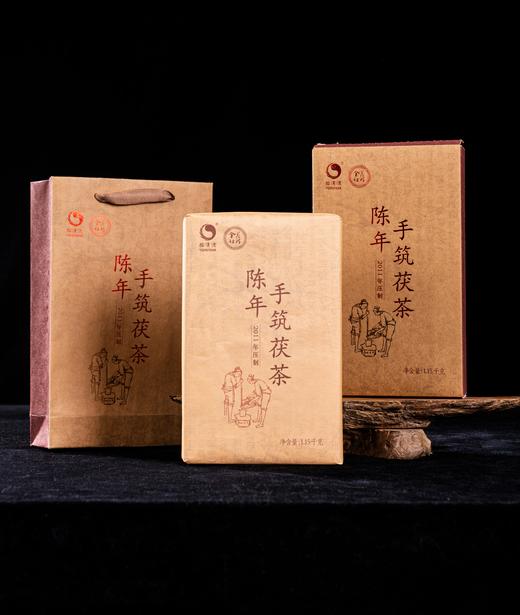 陈年
手筑茯茶
2011年压制
陈年
手筑茯茶
2011年压制
净含量:1.15千克
陈年
手筑茯茶
2011年压制
净含量:1.15千克